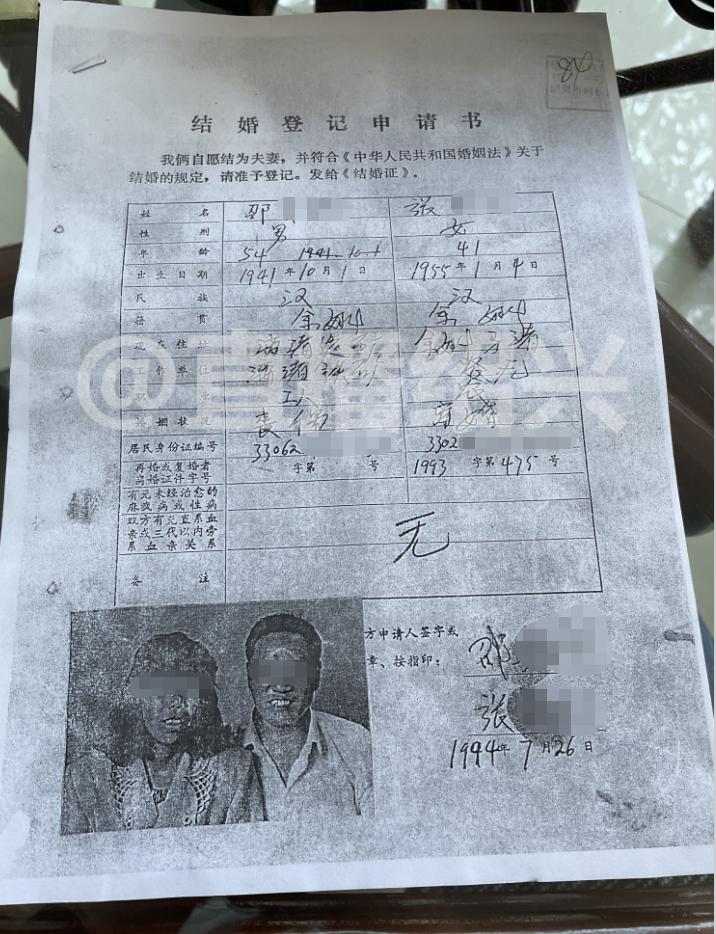 84
结婚登记申请书
我俩自愿结为夫妻，并符合《中华人民共和国婚姻法》关于
结婚的规定，请准予登记。发给《结婚证》。
姓名 邵 张
性别 男 女
年龄 54 1941.10.1 41
出生日期 1941年10月1日 1955年1月4日
民族 汉 汉
籍贯 余姚 余姚
现在住址
工作单位
职业 工人 农
婚姻状况 丧偶 离婚
居民身份证编号 33062 3302
再婚或复婚者 字第 号 1993 字第475号
离婚证件字号
有无未经治愈的
麻疯病或性病
双方有无直系血
亲或三代以内旁
系血亲关系 无
备注
方申请人签字或
章、按指印：
邵
张
1994年7月26日
@直播绍兴